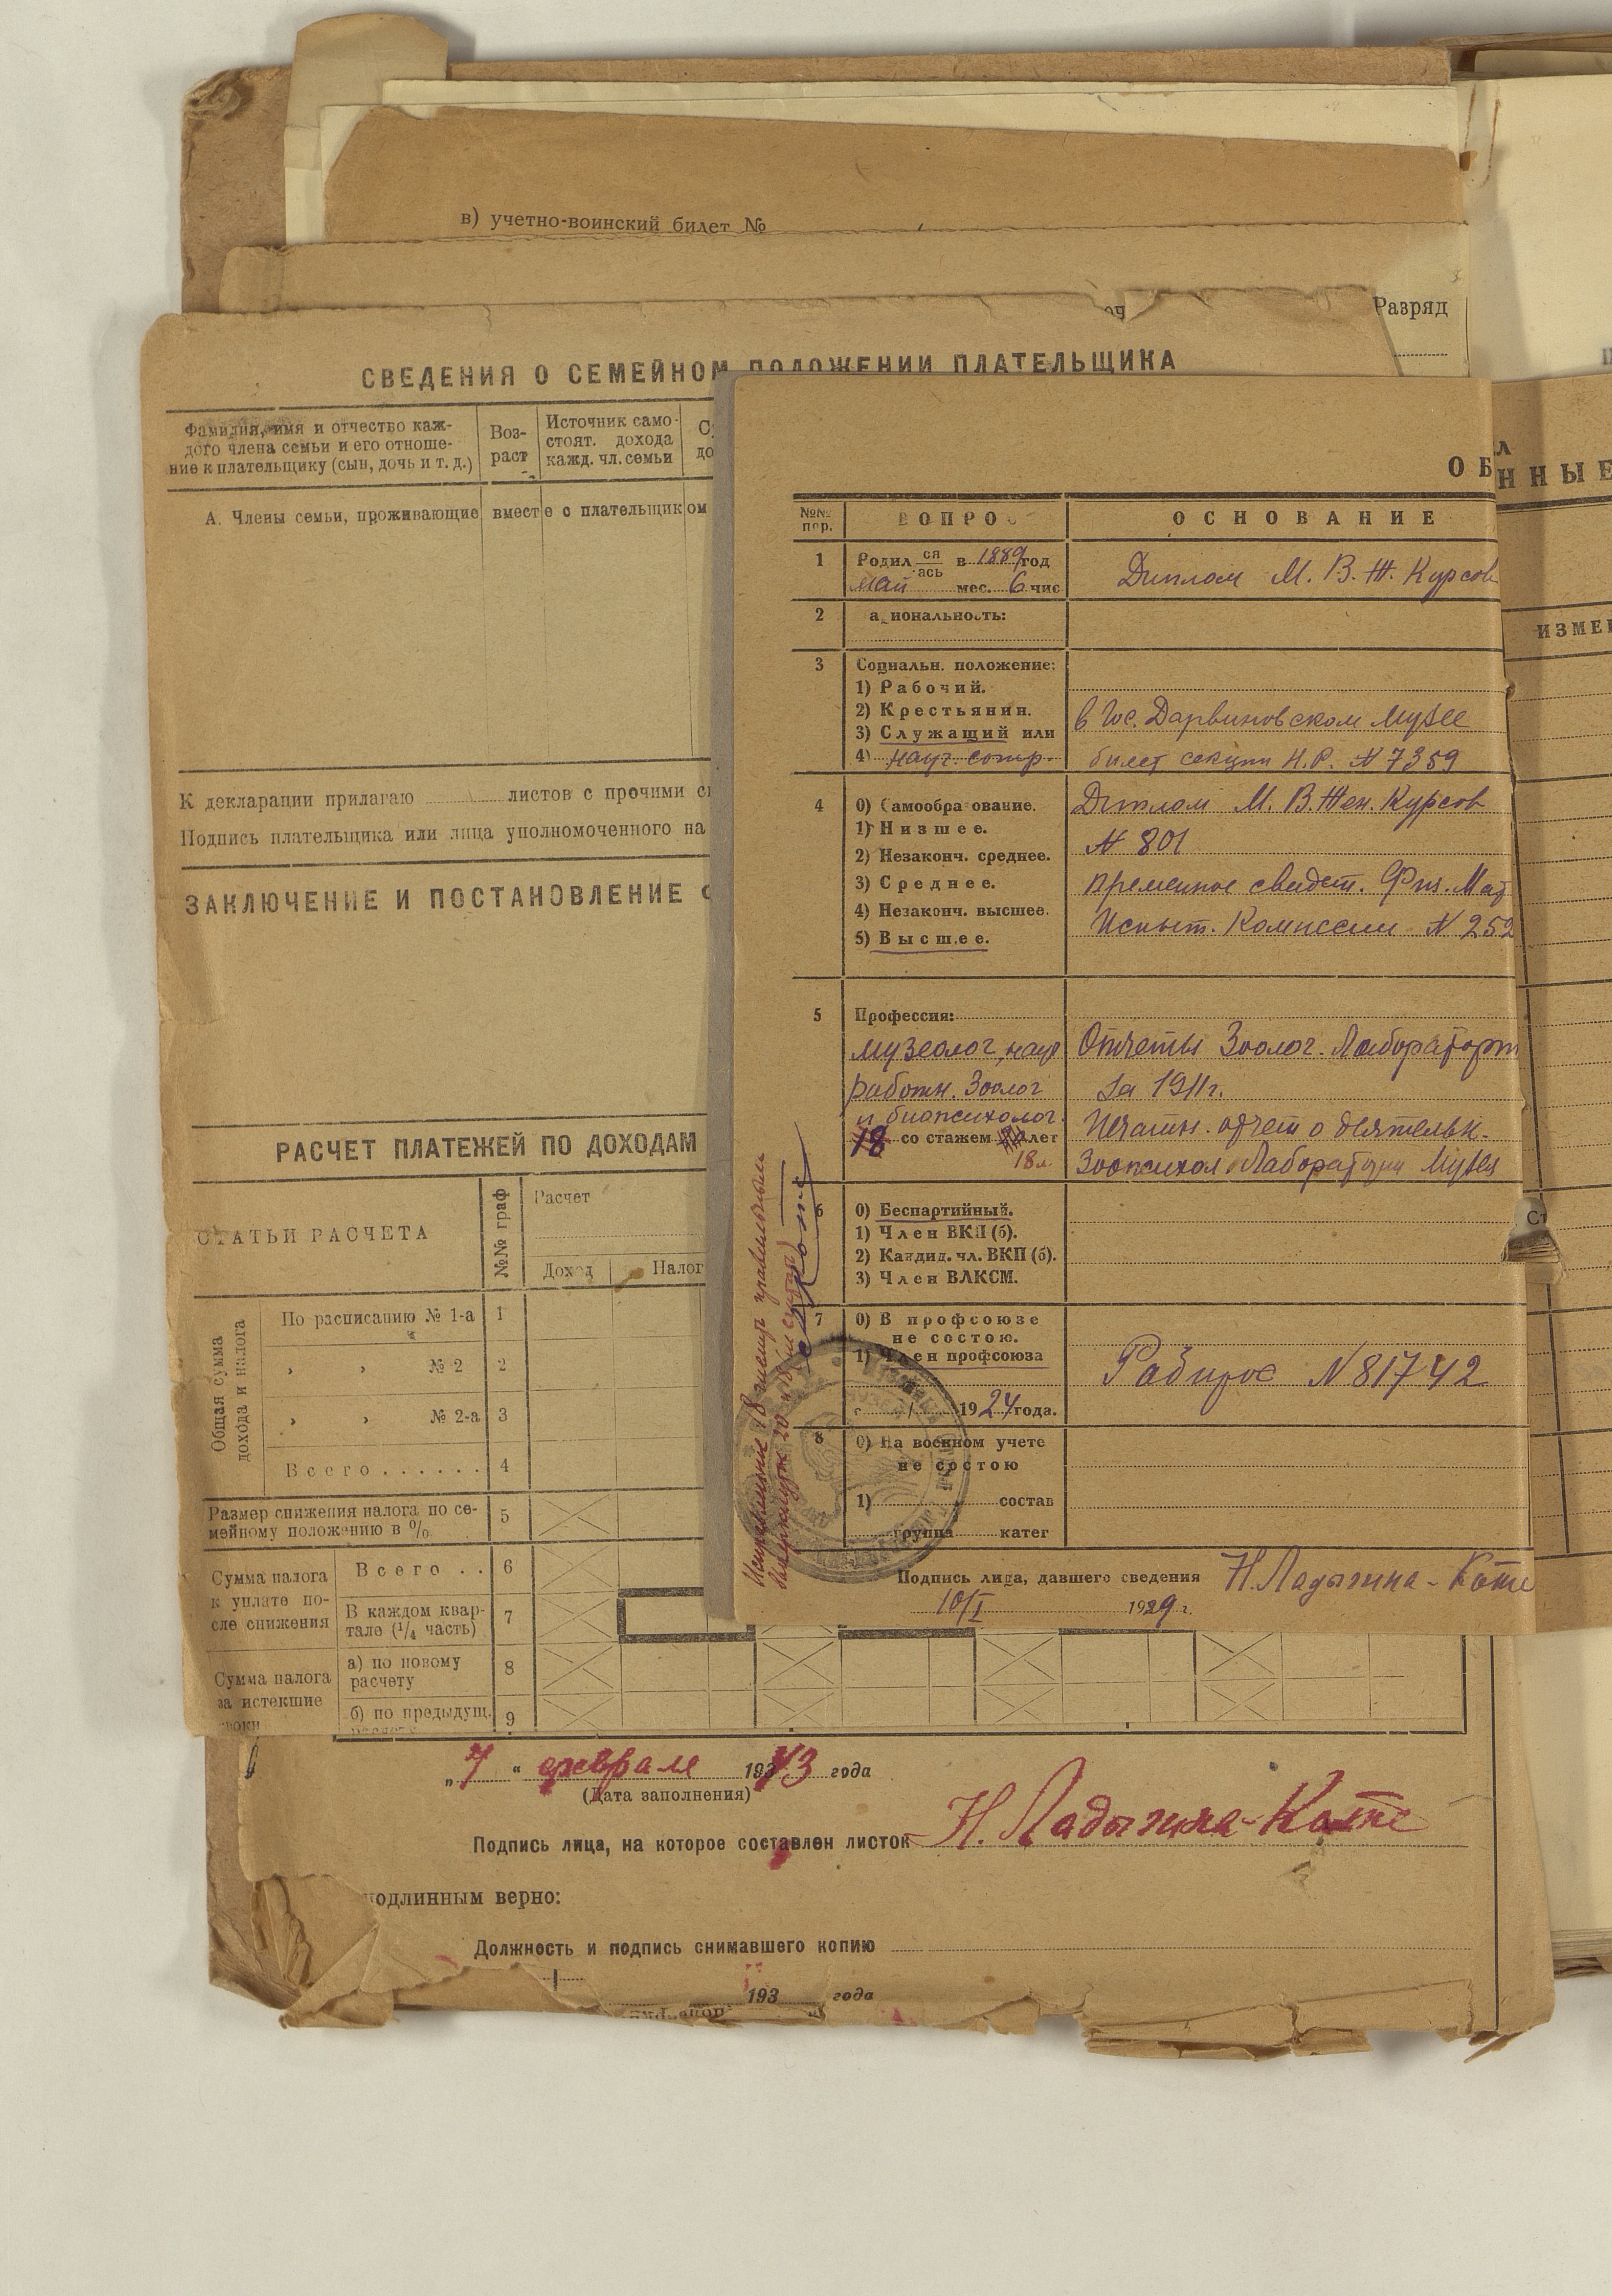 в) учетно-воинский билет №
Разряд
СВЕДЕНИЯ О СЕМЕЙНОМ ПОЛОЖЕНИИ ПЛАТЕЛЬЩИКА
Фамилия, имя и отчество каж-
дого члена семьи и его отноше-
ние к плательщику (сын, дочь и т. д.)
Воз-
раст
Источник само-
стоят. дохода
кажд. чл. семьи
А. Члены семьи, проживающие вместе с плательщиком
К декларации прилагаю ... листов с прочими
Подпись плательщика или лица уполномоченного на
ЗАКЛЮЧЕНИЕ И ПОСТАНОВЛЕНИЕ
РАСЧЕТ ПЛАТЕЖЕЙ ПО ДОХОДАМ
СТАТЬИ РАСЧЕТА
№№ граф
Расчет
Доход
Налог
Общая сумма
дохода и налога
По расписанию № 1-а 1
» » № 2 2
» » № 2-а 3
Всего . . . . . . 4
Размер снижения налога по се-
мейному положению в % 5
Сумма налога
к уплате по-
сле снижения
Всего . . 6
В каждом квар-
тале (1/4 часть) 7
Сумма налога
за истекшие
сроки
а) по новому
расчету 8
б) по предыдущ. 9
№№
пор.
ВОПРОС
ОСНОВАНИЕ
1 Родил ся/ась в 1889 год
май мес. 6 чис
Диплом М. В. Ж. Курсов
2 а иональность:
3 Социальн. положение:
1) Рабочий.
2) Крестьянин.
3) Служащий или
4) науч. сотр.
в Гос. Дарвиновском Музее
билет секции Н.Р. № 7359
4 0) Самообразование.
1) Низшее.
2) Незаконч. среднее.
3) Среднее.
4) Незаконч. высшее.
5) Высшее.
Диплом М. В. Жен. Курсов
№ 801
временное свидет. Физ. Мат
Испыт. Комиссии № 252
5 Профессия:
музеолог, науч
работн. Зоолог
и биопсихолог.
18 со стажем лет
18 л.
Отчеты Зоолог. Лаборатории
за 1911 г.
Печатн. отчет о деятельн.
Зоопсихол. Лаборатории Музея
6 0) Беспартийный.
1) Член ВКП (б).
2) Кандид. чл. ВКП (б).
3) Член ВЛКСМ.
7 0) В профсоюзе
не состою.
1) Член профсоюза
с / 1924 года.
Рабпрос № 81742
8 0) На военном учете
не состою
1) состав
группа катег
Подпись лица, давшего сведения Н. Ладыгина-Котс
10/I 1929 г.
ИЗМЕ
„7“ февраля 1943 года
(Дата заполнения)
Подпись лица, на которое составлен листок Н. Ладыгина-Котс
подлинным верно:
Должность и подпись снимавшего копию
193 года